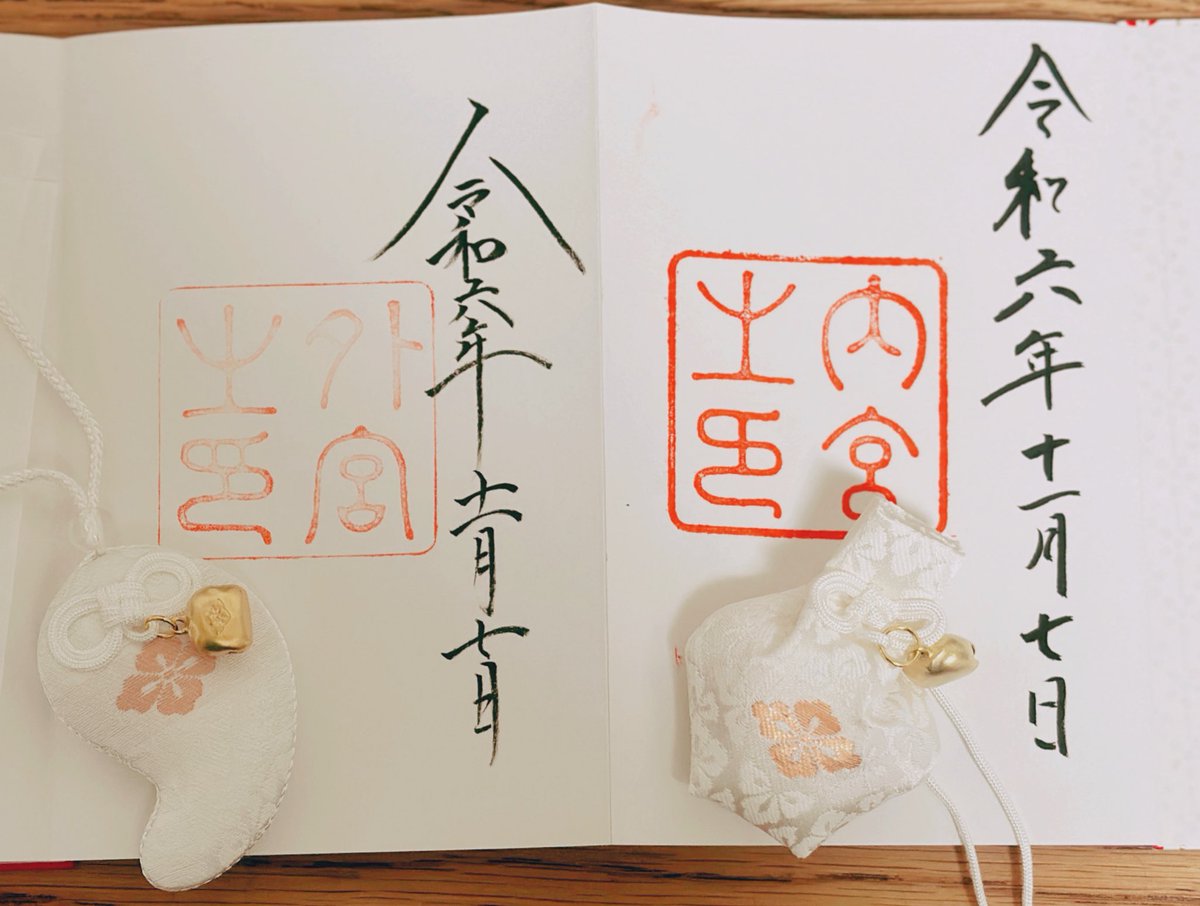 令和六年十一月七日
内宮
之印
令和六年十一月七日
外宮
之印